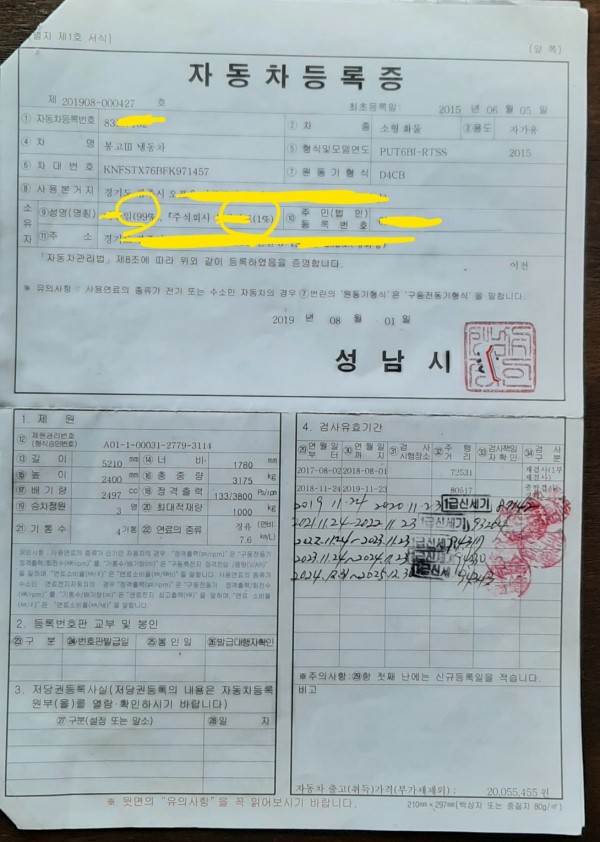 별지 제1호 서식)
(앞 쪽)
자동차등록증
제 201908-000427 호
최초등록일: 2015 년 06 월 05 일
① 자동차등록번호
② 차 종 소형 화물 ③용도 자가용
④ 차 명 봉고Ⅲ 냉동차
⑤ 형식및모델연도 PUT6BI-RTSS 2015
⑥ 차 대 번 호 KNFSTX76BFK971457
⑦ 원 동 기 형 식 D4CB
⑧ 사 용 본 거 지
소유자
⑨성명(명칭) (99%) 『주식회사 (1%)
⑩ 주 민 (법 인) 등 록 번 호
⑪ 주 소
「자동차관리법」제8조에 따라 위와 같이 등록하였음을 증명합니다.
이전
※ 유의사항 : 사용연료의 종류가 전기 또는 수소인 자동차의 경우 ⑦번란의 '원동기형식' 은 '구동전동기형식' 을 말합니다.
2019 년 08 월 01 일
성 남 시
1. 제 원
⑫ 제원관리번호 (형식승인번호) A01-1-00031-2779-3114
⑬ 길 이 5210 mm ⑭ 너 비 1780 mm
⑮ 높 이 2400 mm ⑯ 총 중 량 3175 kg
⑰ 배 기 량 2497 cc ⑱ 정 격 출 력 133/3800 Ps/rpm
⑲ 승차정원 3 명 ⑳ 최대적재량 1000 kg
㉑ 기 통 수 4 기통 ㉒ 연료의 종류 경유 (연비 7.6 km/L)
2. 등록번호판 교부 및 봉인
㉓ 구 분 ㉔ 번호판발급일 ㉕ 봉 인 일 ㉖ 발급대행자확인
3. 저당권등록사실(저당권등록의 내용은 자동차등록
원부(을)를 열람·확인하시기 바랍니다)
㉗ 구분(설정 또는 말소) ㉘ 일 자
4. 검사유효기간
㉙ 연 월 일 부 터 ㉚ 연 월 일 까 지 ㉛ 검 사 시행장소 ㉜ 주 행 거 리 ㉝ 검사책임 자 확 인 ㉞ 검 사 구 분
2017-08-02 2018-08-01 72531
2018-11-24 2019-11-23 80517
2019 11.24 2020 11.23 1급신세기
2021.11.24-2022.11.23 1급신세기
2022.11.24-2023.11.23 1급신세기
2023.11.24-2024.11.23 1급신세기
2024.12.31-2025.12.30 1급신세기
※주의사항:㉙항 첫째 난에는 신규등록일을 적습니다.
비고
자동차 출고(취득)가격(부가세제외) : 20,055,455 원
※ 뒷면의 "유의사항"을 꼭 읽어보시기 바랍니다.
210㎜×297㎜[백상지 또는 중질지 80g/㎡]